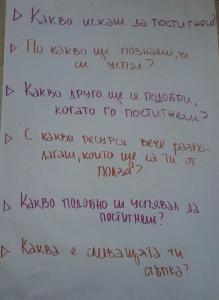 Какво искаш да постигнеш?
По какво ще познаеш, че
си успял?
Какво друго ще се подобри,
когато го постигнеш?
С какви ресурси вече разпо-
лагаш, които ще са ти от
полза?
Какво подобно си успявал да
постигнеш?
Каква е следващата ти
стъпка?